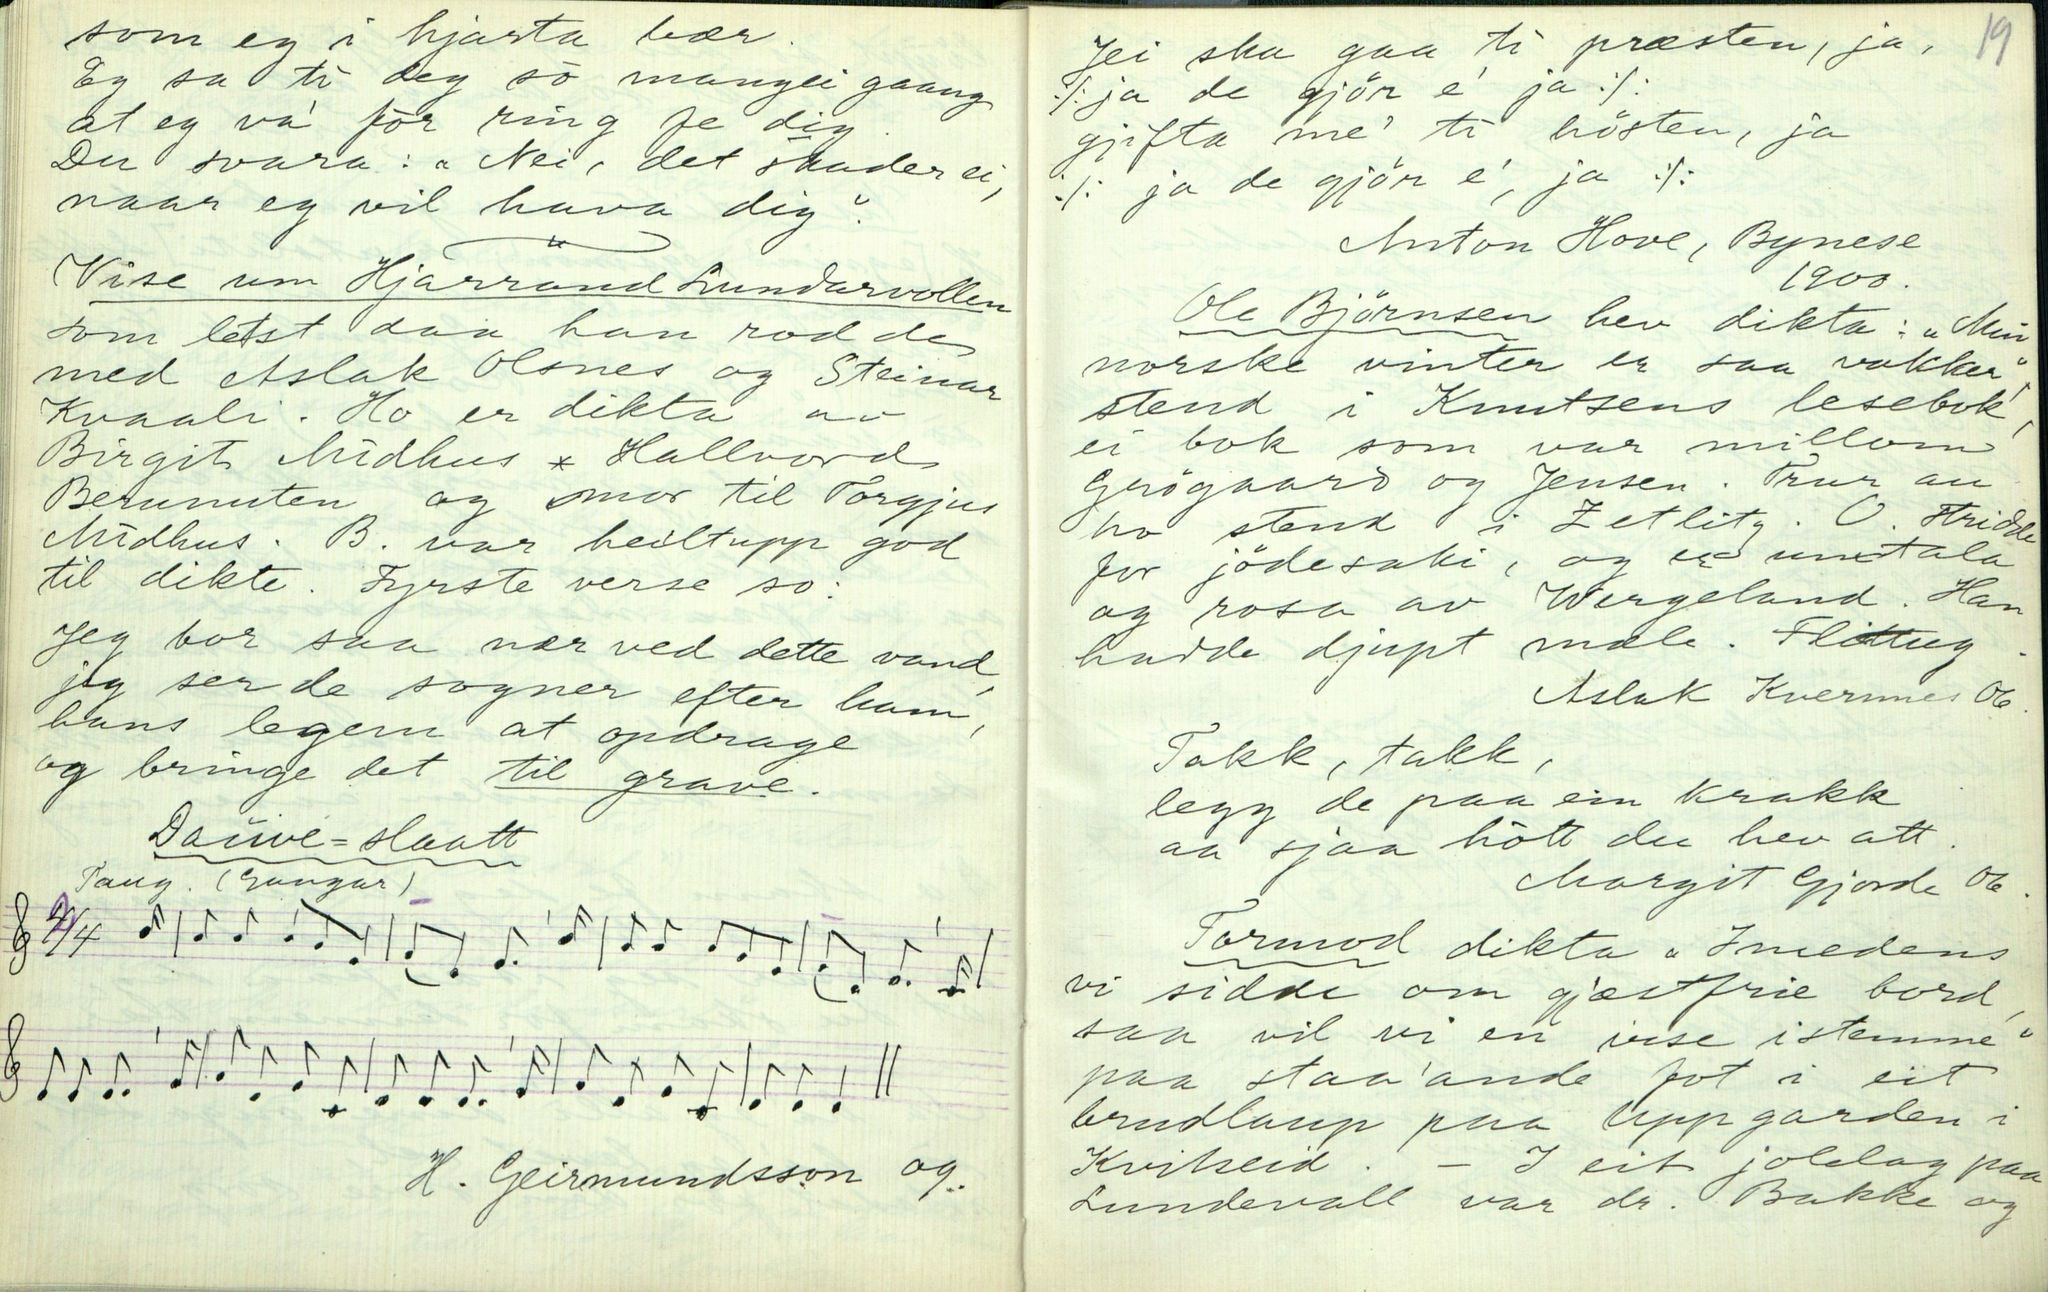 som eg i hjarta bær.
Eg sa ti deg so mangei gaang
at eg va' for ring fe dig.
Du svara: „Nei, det skader ei,
naar eg vil hava dig".
Vise um Hjarrand Lundarvollen
som letst daa han rodde
med Aslak Olsnes og Steinar
Kvaali. Ho er dikta av
Birgit Midhus * Hallvord
Berunuten og mor til Torgjus
Midhus. B. var heiltupp god
til dikte. Fyrste verse so:
Jeg bor saa nær ved dette vand,
jeg ser de sogner efter ham,
hans legem at opdrage
og bringe det til grave.
Dauve=slaatt
Taug. (Gangar)
2/4
H. Geirmundsson og.
19
Jei ska gaa ti præsten, ja,
:/: ja de gjör e' ja :/:
gjifta me' ti hösten, ja
:/: ja de gjör e', ja :/:
Anton Hove, Bynese
1900.
Ole Björnsen hev dikta: „Min
norske vinter er saa vakker",
stend i Knutsens lesebok,
ei bok som var millom
Grögaard og Jensen. Trur au
ho stend i Zetlitz. O. stridde
for jödesaki, og er umtala
og rosa av Wergeland. Han
hadde djupt mæle. Flittug.
Aslak Kvernnes 06.
Takk, takk,
legg de paa ein krakk
aa sjaa hött du hev att.
Margit Gjorde 06.
Tormod dikta „Imedens
vi sidde om gjæstfrie bord,
saa vil vi en vise istemme"
paa staa'ande fot i eit
brudlaup paa Uppgarden i
Kviteseid. – I eit jolelag paa
Lundevall var dr. Bakke og